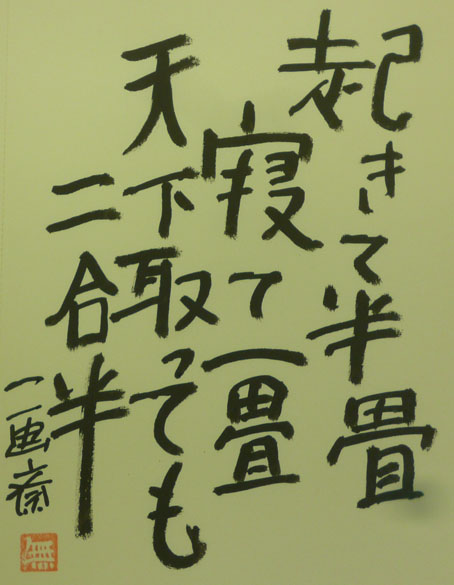 起きて半畳
寝て一畳
天下取っても
二合半